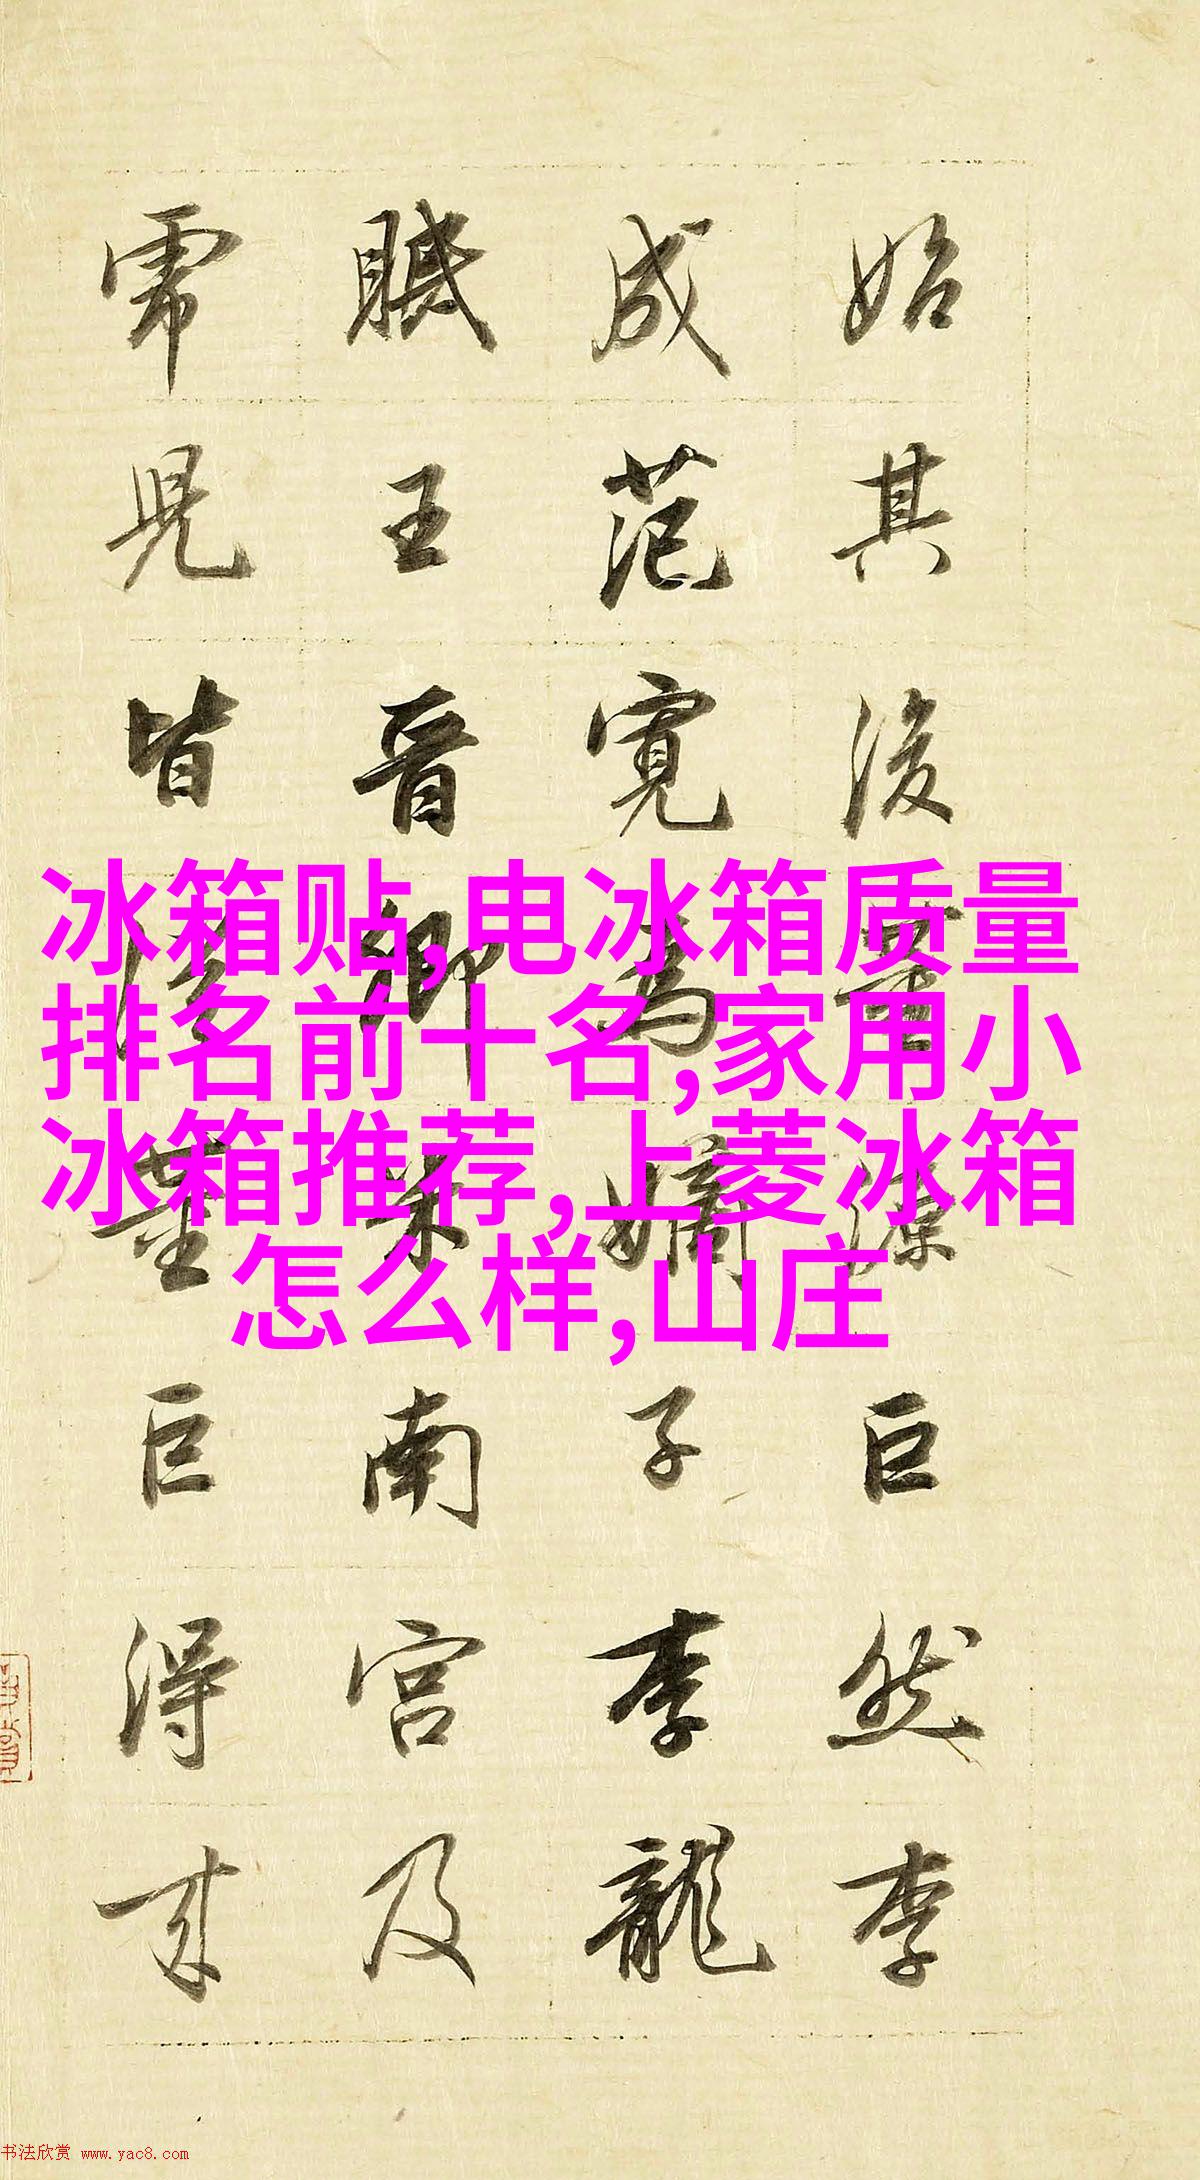 始其後董源巨然李
成范寬為嫡子李龍
眠王晉卿米南宮及
虎兒皆從董巨得來
冰箱贴,电冰箱质量
排名前十名,家用小
冰箱推荐,上菱冰箱
怎么样,山庄
书法欣赏 www.yac8.com